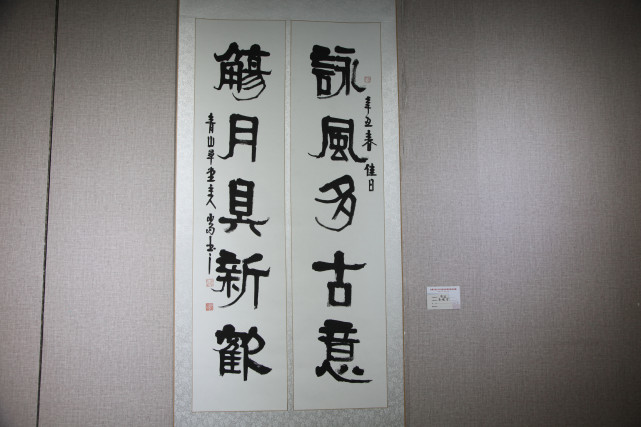 詠風多古意
辛丑春佳日
觴月具新歡
青山草堂主人